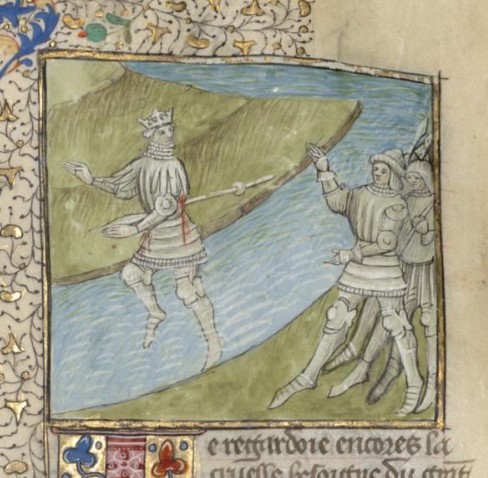 e regardoie encores la
cruelle besoigne du